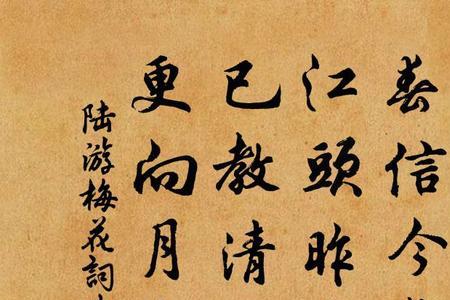 春信今
江頭昨
已教清
更向月
陸游梅花詞